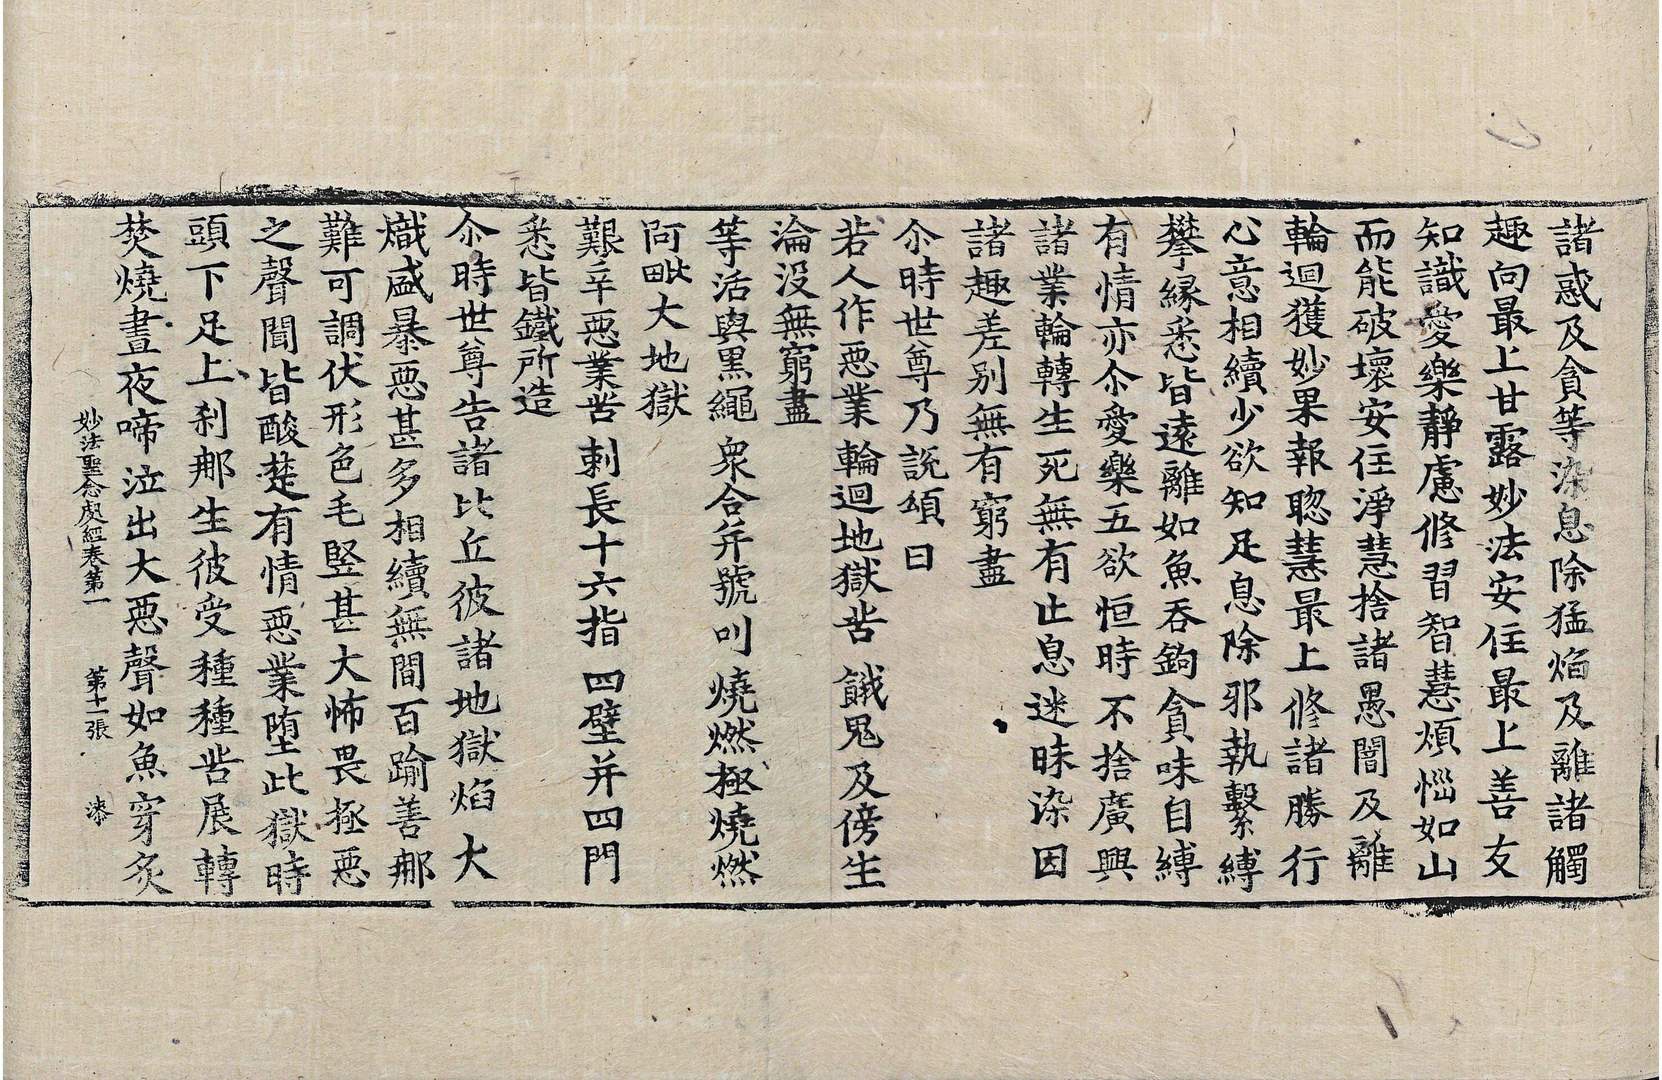 諸惑及貪等染息除猛焰及離諸觸
趣向最上甘露妙法安住最上善友
知識愛樂靜慮修習智慧煩惱如山
而能破壞安住淨慧捨諸愚闇及離
輪迴獲妙果報聦慧最上修諸勝行
心意相續少欲知足息除邪執繫縛
攀緣悉皆遠離如魚吞鉤貪味自縛
有情亦尒愛樂五欲恒時不捨廣興
諸業輪轉生死無有止息迷昧染因
諸趣差別無有窮盡
尒時世尊乃說頌曰
若人作惡業 輪迴地獄苦 餓鬼及傍生
淪沒無窮盡
等活與黑繩 衆合并號叫 燒燃極燒燃
阿毗大地獄
艱辛惡業苦 刺長十六指 四壁并四門
悉皆鐵所造
尒時世尊告諸比丘彼諸地獄焰大
熾盛暴惡甚多相續無間百踰善那
難可調伏形色毛竪甚大怖畏極惡
之聲聞皆酸楚有情惡業墮此獄時
頭下足上刹那生彼受種種苦展轉
焚燒晝夜啼泣出大惡聲如魚穿炙
妙法聖念處經卷第一 第十一張 漆